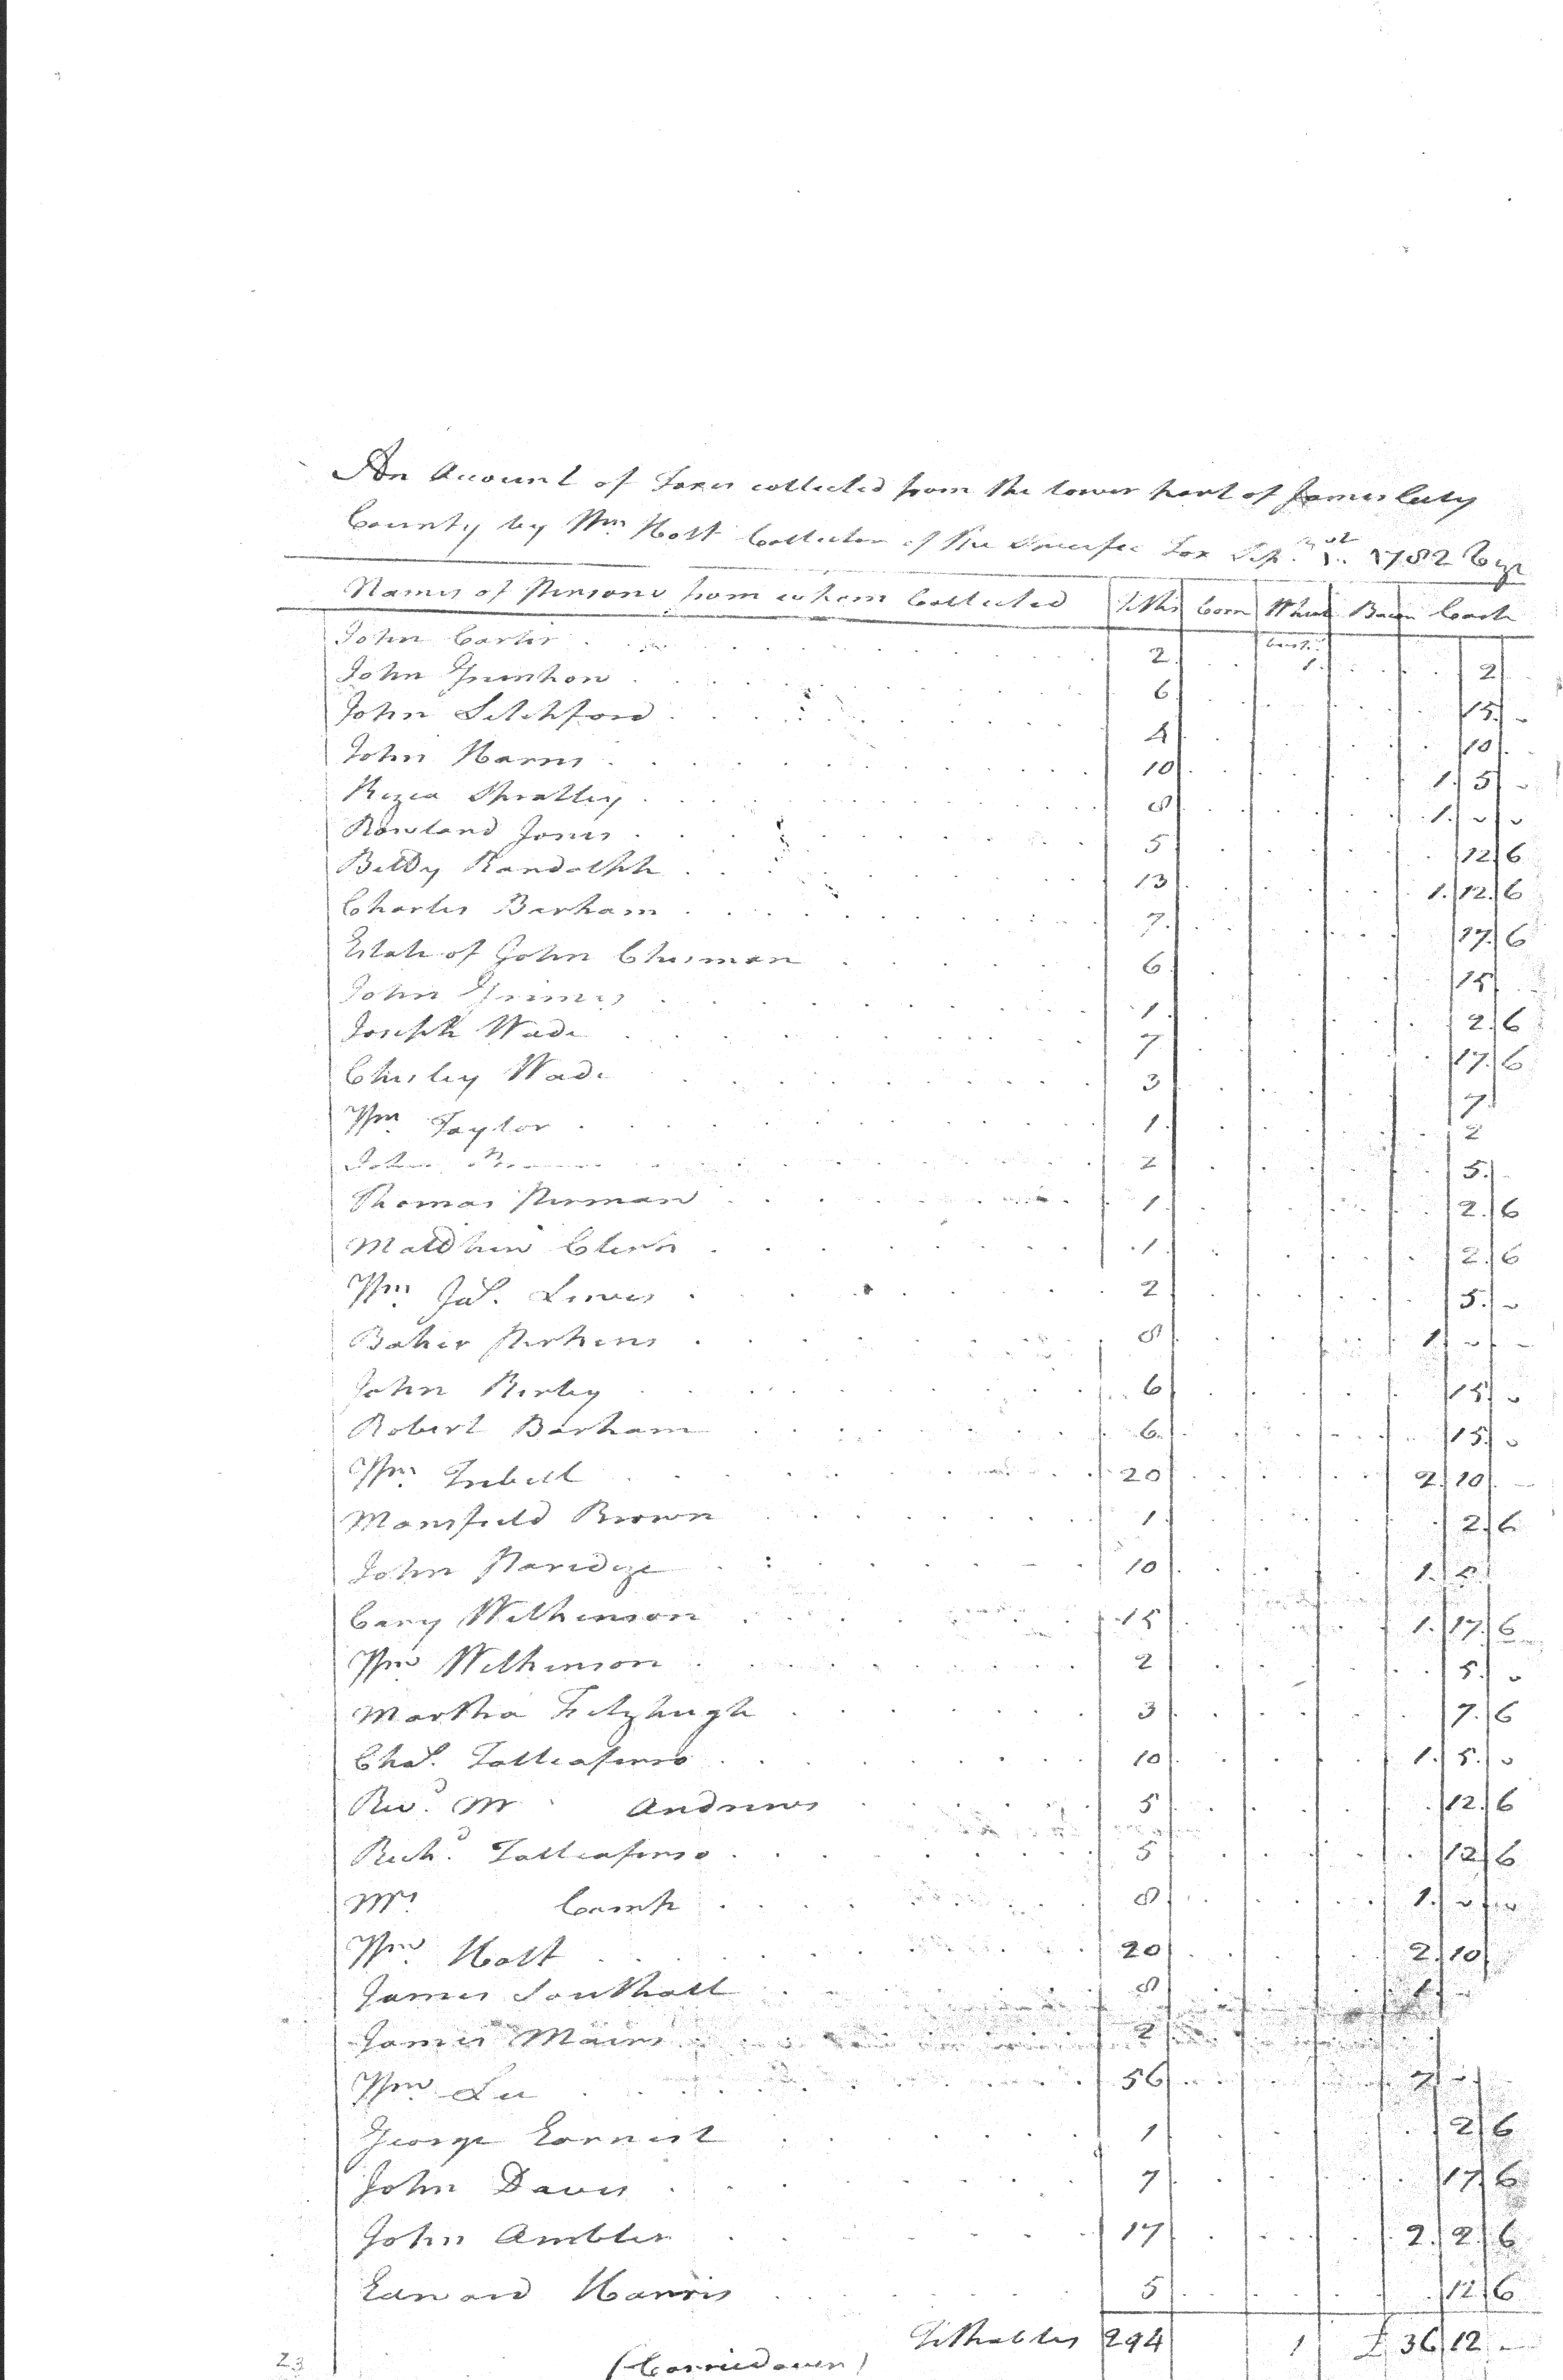 An Account of Taxes collected from the lower part of James City
County by Wm. Holt Collector of the Specific Tax Sep. 1st 1782
Names of Persons from whom Collected Tiths Corn Wheat Bacon Cash
John Carter 2 bush. 1 2
John Greenhow 6 15
John Letchford 4 10
John Harris 10 1 5
Kezia Spratley 8 1
Rowland Jones 5 12 6
Betty Randolph 13 1 12 6
Charles Barham 7 17 6
Estate of John Chisman 6 15
John Grimes 1 2 6
Joseph Wade 7 17 6
Chisley Wade 3 7
Wm Taylor 1 2
John 2 5
Thomas Pierman 1 2 6
Matthew Clerk 1 2 6
Wm. Jas. Lewis 2 5
Baker Perkins 8 1
John Kerby 6 15
Robert Barham 6 15
Wm. Trebell 20 2 10
Mansfield Brown 1 2 6
John Paradize 10 1 5
Cary Wilkinson 15 1 17 6
Wm Wilkinson 2 5
Martha Fitzhugh 3 7 6
Chas. Talleaferro 10 1 5
Revd. Mr Andrews 5 12 6
Richd. Talleaferro 5 12 6
Mrs Camp 8 1
Wm. Holt 20 2 10
James Southall 8 1
James Mairs 2
Wm Lee 56 7
George Earnest 1 2 6
John Davis 7 17 6
John Ambler 17 2 2 6
Edward Harris 5 12 6
Tithables 294 1 £ 36 12
(Carried over)
23